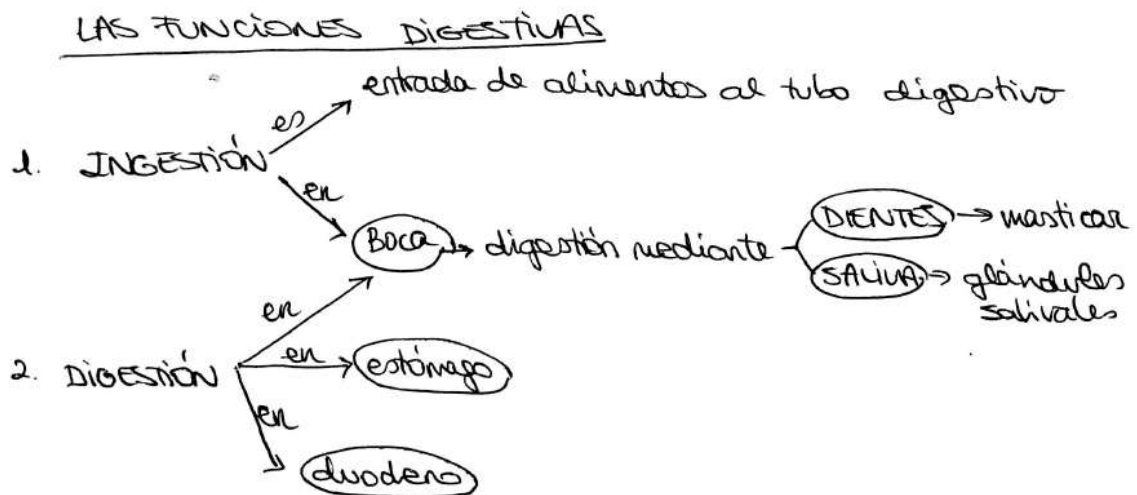 LAS FUNCIONES DIGESTIVAS
es entrada de alimentos al tubo digestivo
1. INGESTIÓN
en
BOCA → digestión mediante DIENTES → masticar
SALIVA → glándulas
salivales
en
2. DIGESTIÓN en estómago
en
duodeno